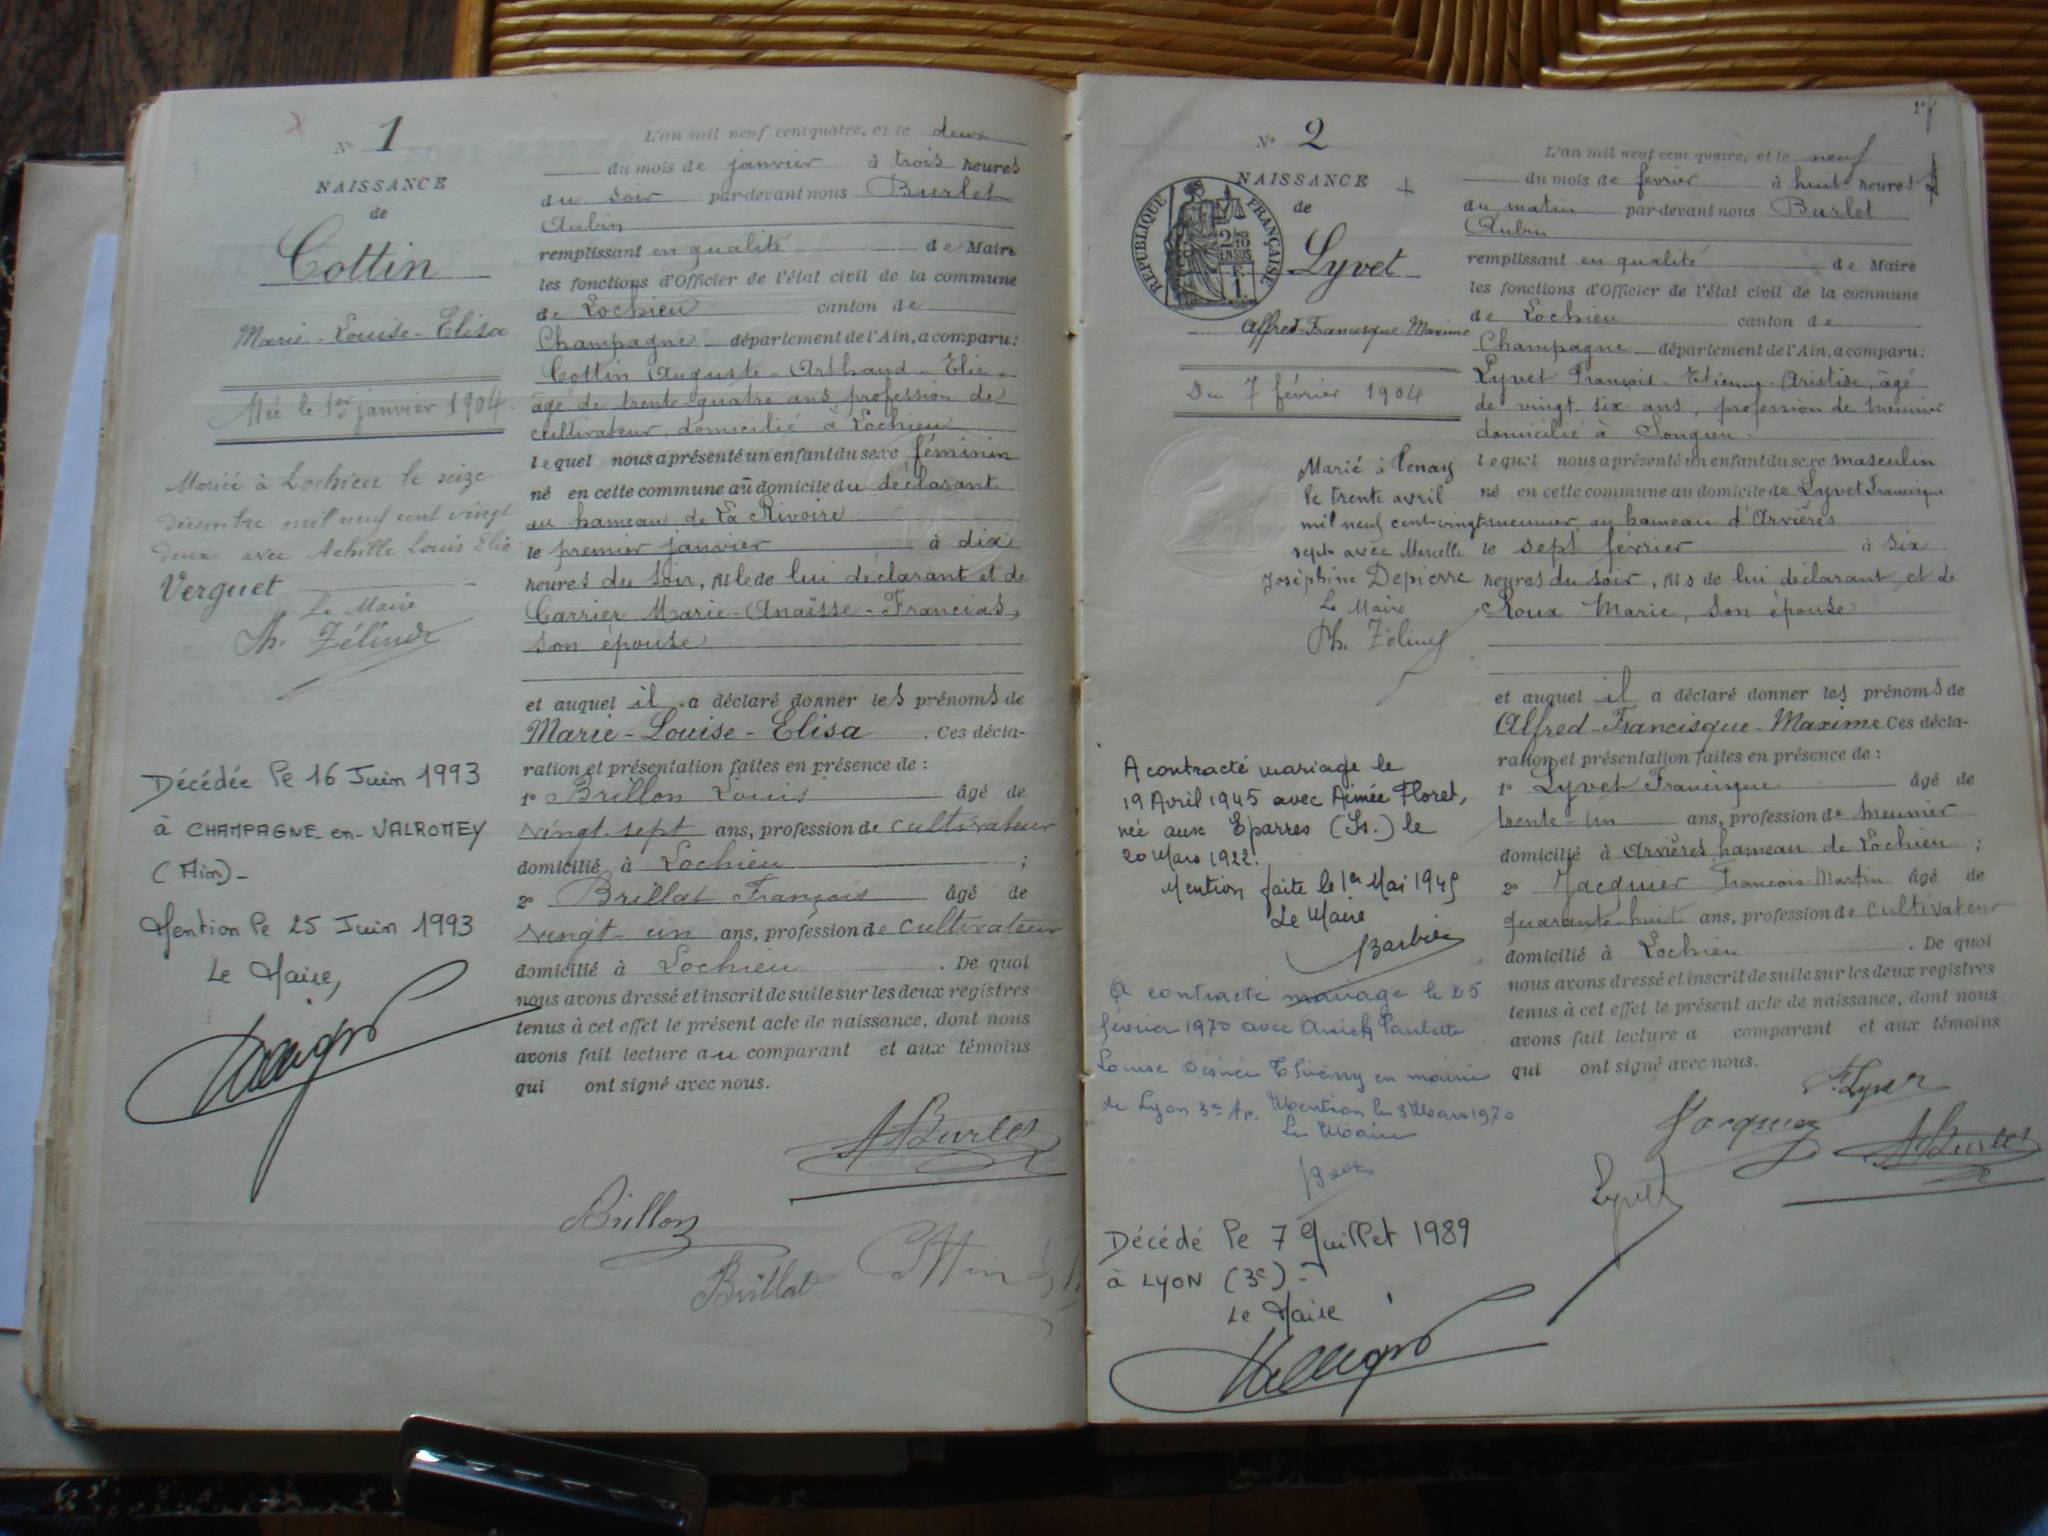 N° 1
NAISSANCE
de
Cottin
Marie-Louise-Elisa
Née le 1er janvier 1904.
Mariée à Lochieu le seize
décembre mil neuf cent vingt
deux avec Achille Louis Elie
Verguet
Le Maire
Ph. Zélindr
Décédée le 16 Juin 1993
à CHAMPAGNE-en-VALROMEY
(Ain)-
Mention le 25 Juin 1993
Le Maire,
L'an mil neuf cent quatre, et le deux
du mois de janvier à trois heures
du soir par-devant nous Burlet
Aubin
remplissant en qualité de Maire
les fonctions d'Officier de l'état civil de la commune
de Lochieu canton de
Champagne département de l'Ain, a comparu:
Cottin Auguste-Arthaud-Elie-
âgé de trente-quatre ans profession de
cultivateur, domicilié à Lochieu
lequel nous a présenté un enfant du sexe féminin
né en cette commune au domicile du déclarant
au hameau de La Rivoire
le premier janvier à dix
heures du soir, fille de lui déclarant et de
Carrier Marie-Anaïsse-Francias,
son épouse
et auquel il a déclaré donner les prénoms de
Marie-Louise-Elisa. Ces décla-
ration et présentation faites en présence de :
1° Brillon Louis âgé de
vingt-sept ans, profession de cultivateur
domicilié à Lochieu ;
2° Brillat François âgé de
vingt-un ans, profession de cultivateur
domicilié à Lochieu. De quoi
nous avons dressé et inscrit de suite sur les deux registres
tenus à cet effet le présent acte de naissance, dont nous
avons fait lecture au comparant et aux témoins
qui ont signé avec nous.
A Burlet
Brillon
Brillat
Cottin
N° 2
NAISSANCE
de
Lyvet
RÉPUBLIQUE FRANÇAISE
2/10 EN SUS
F.
1.
Alfred-Francisque-Maxime
Du 7 février 1904
Marié à Tenay
le trente avril
mil neuf cent vingt
sept avec Marcelle
Joséphine Depierre
Le Maire
Ph. Zélindr
A contracté mariage le
19 Avril 1945 avec Aimée Floret,
née aux Eparres (Is.) le
20 Mars 1922.
Mention faite le 1er Mai 1945
Le Maire
Barbier
A contracté mariage le 25
février 1970 avec Anick Paulette
Louise Désirée Thiérry en mairie
de Lyon 3e Ar. Mention le 3 Mars 1970
Le Maire
Décédé le 7 Juillet 1989
à LYON (3e)-
Le Maire
L'an mil neuf cent quatre, et le neuf
du mois de février à huit heures
du matin par-devant nous Burlet
Aubin
remplissant en qualité de Maire
les fonctions d'Officier de l'état civil de la commune
de Lochieu canton de
Champagne département de l'Ain, a comparu:
Lyvet François-Etienne-Aristide, âgé
de vingt-six ans, profession de meunier
domicilié à Songieu.
lequel nous a présenté un enfant du sexe masculin
né en cette commune au domicile de Lyvet Francisque
meunier, au hameau d'Arvières
le sept février à six
heures du soir, fils de lui déclarant et de
Roux Marie, son épouse
et auquel il a déclaré donner les prénoms de
Alfred-Francisque-Maxime. Ces décla-
ration et présentation faites en présence de :
1° Lyvet Francisque âgé de
trente-un ans, profession de meunier
domicilié à Arvières hameau de Lochieu ;
2° Jacquier François Martin âgé de
quarante-huit ans, profession de cultivateur
domicilié à Lochieu. De quoi
nous avons dressé et inscrit de suite sur les deux registres
tenus à cet effet le présent acte de naissance, dont nous
avons fait lecture a comparant et aux témoins
qui ont signé avec nous.
F. Lyvet
Jacquier
A Burlet
Lyvet